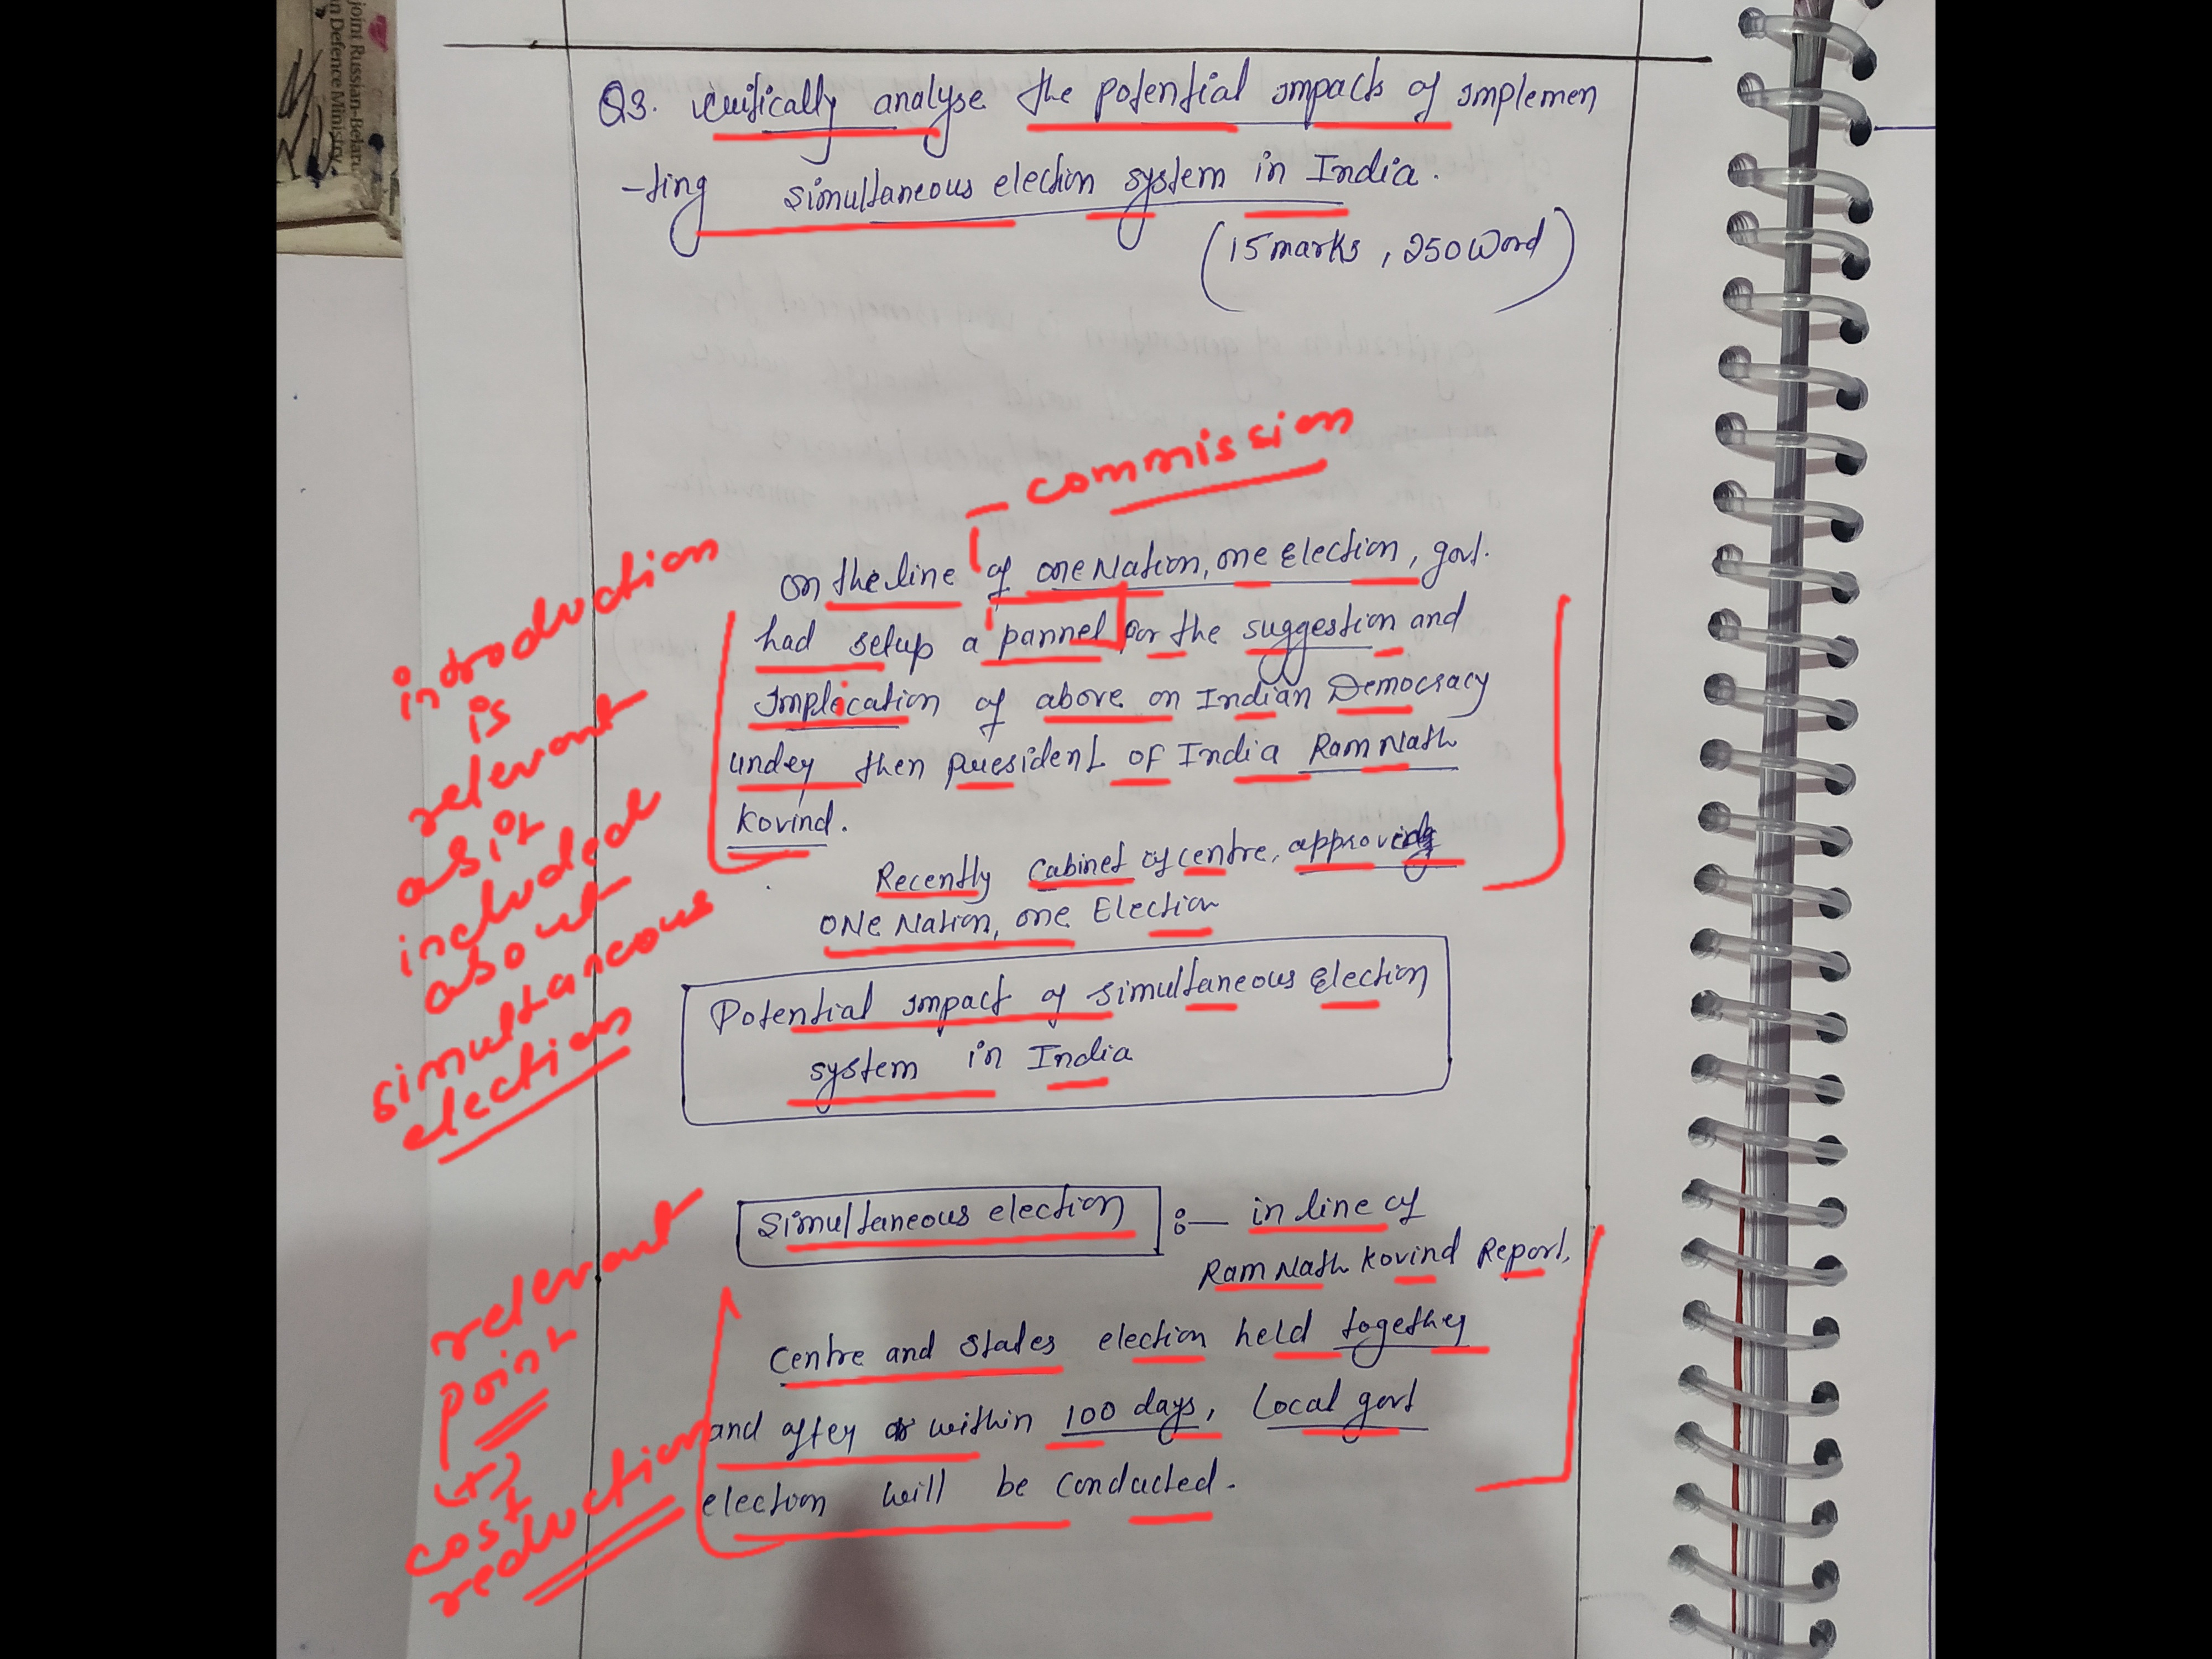 joint Russian-Belaru
n Defence Ministry
Q3. critically analyse the potential impacts of implemen
-ting simultaneous election system in India.
(15 marks, 250 word)
commission
on the line of one Nation, one Election, govt.
had setup a pannel for the suggestion and
Implication of above on Indian Democracy
under then president of India Ram Nath
Kovind.
Recently Cabinet of centre, approving
ONe Nation, one Election
introduction
is
relevant
as it
included
about
simultaneous
election
Potential impact of simultaneous Election
system in India
Simultaneous election :— in line of
Ram Nath Kovind Report,
Centre and States election held together
and after or within 100 days, Local govt
election will be conducted.
relevant
point
(+)
cost
reduction